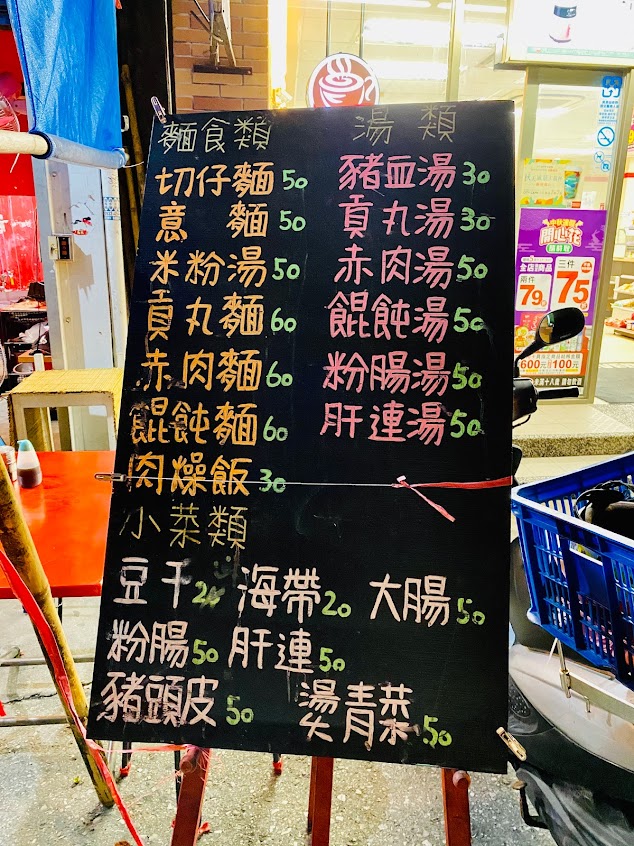 麵食類
切仔麵50
意 麵50
米粉湯50
貢丸麵60
赤肉麵60
餛飩麵60
肉燥飯30
湯類
豬血湯30
貢丸湯30
赤肉湯50
餛飩湯50
粉腸湯50
肝連湯50
小菜類
豆干20 海帶20 大腸50
粉腸50 肝連50
豬頭皮50 燙青菜50
開心花
兩件 三件
79 75
600元 100元